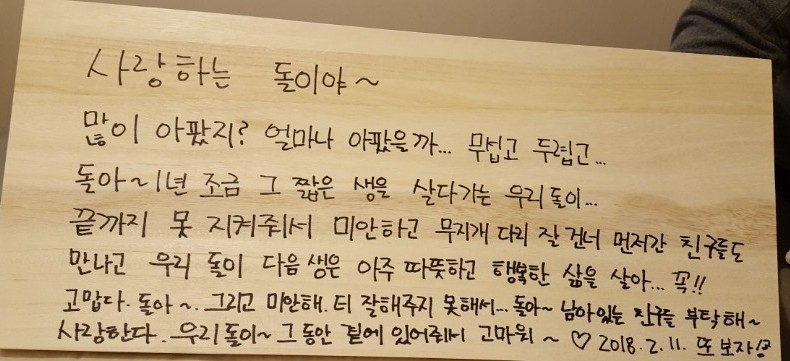 사랑하는 돌이야~
많이 아팠지? 얼마나 아팠을까... 무섭고 두렵고...
돌아~1년 조금 그 짧은 생을 살다가는 우리돌이...
끝까지 못 지켜줘서 미안하고 무지개 다리 잘 건너 먼저간 친구들도
만나고 우리 돌이 다음 생은 아주 따뜻하고 행복한 삶을 살아... 꼭!!
고맙다. 돌아~. 그리고 미안해. 더 잘해주지 못해서... 돌아~ 남아있는 친구들 부탁해~
사랑한다. 우리돌이~ 그동안 곁에 있어줘서 고마워~ ♡ 2018. 2. 11. 또 보자